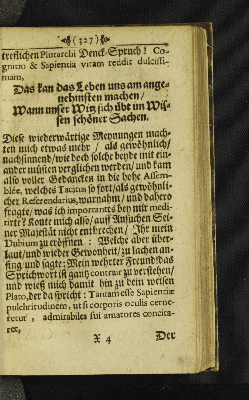 (327)
trefflichen Plutarchi Denck-Spruch! Co-
gnitio & Sapientia vitam reddit dulcissi-
mam,
Das kan das Leben uns am ange-
nehmsten machen/
Wann unser Witz sich übt im Wis-
sen schöner Sachen.
Diese wiederwärtige Meynungen mach-
ten mich etwas mehr/ als gewöhnlich/
nachsinnend/wie doch solche beyde mit ein-
ander müsten verglichen werden/und kam
also voller Gedancken in die hehe Assem-
blée, welches Tacitus so fort/als gewöhnli-
cher Referendarius, warnahm/ und dahero
fragte, was ich importantes bey mir medi-
tirte? Konte mich also/ auff Ansuchen Sei-
ner Majestät nicht entbrechen/ Ihr mein
Dubium zu eröffnen: Welche aber über-
laut/und wieder Gewonheit/ zu lachen an-
fing/ und sagte: Mein wehrter Freund/das
Sprichwort ist gantz contrair zu verstehen/
und wieß mich damit hin zu dem weisen
Plato, der da spricht: Tantam esse Sapientiæ
pulchritudinem, ut si corporis oculis cerne-
retur, admirabiles sui amatores concita-
ret,
X 4 Der